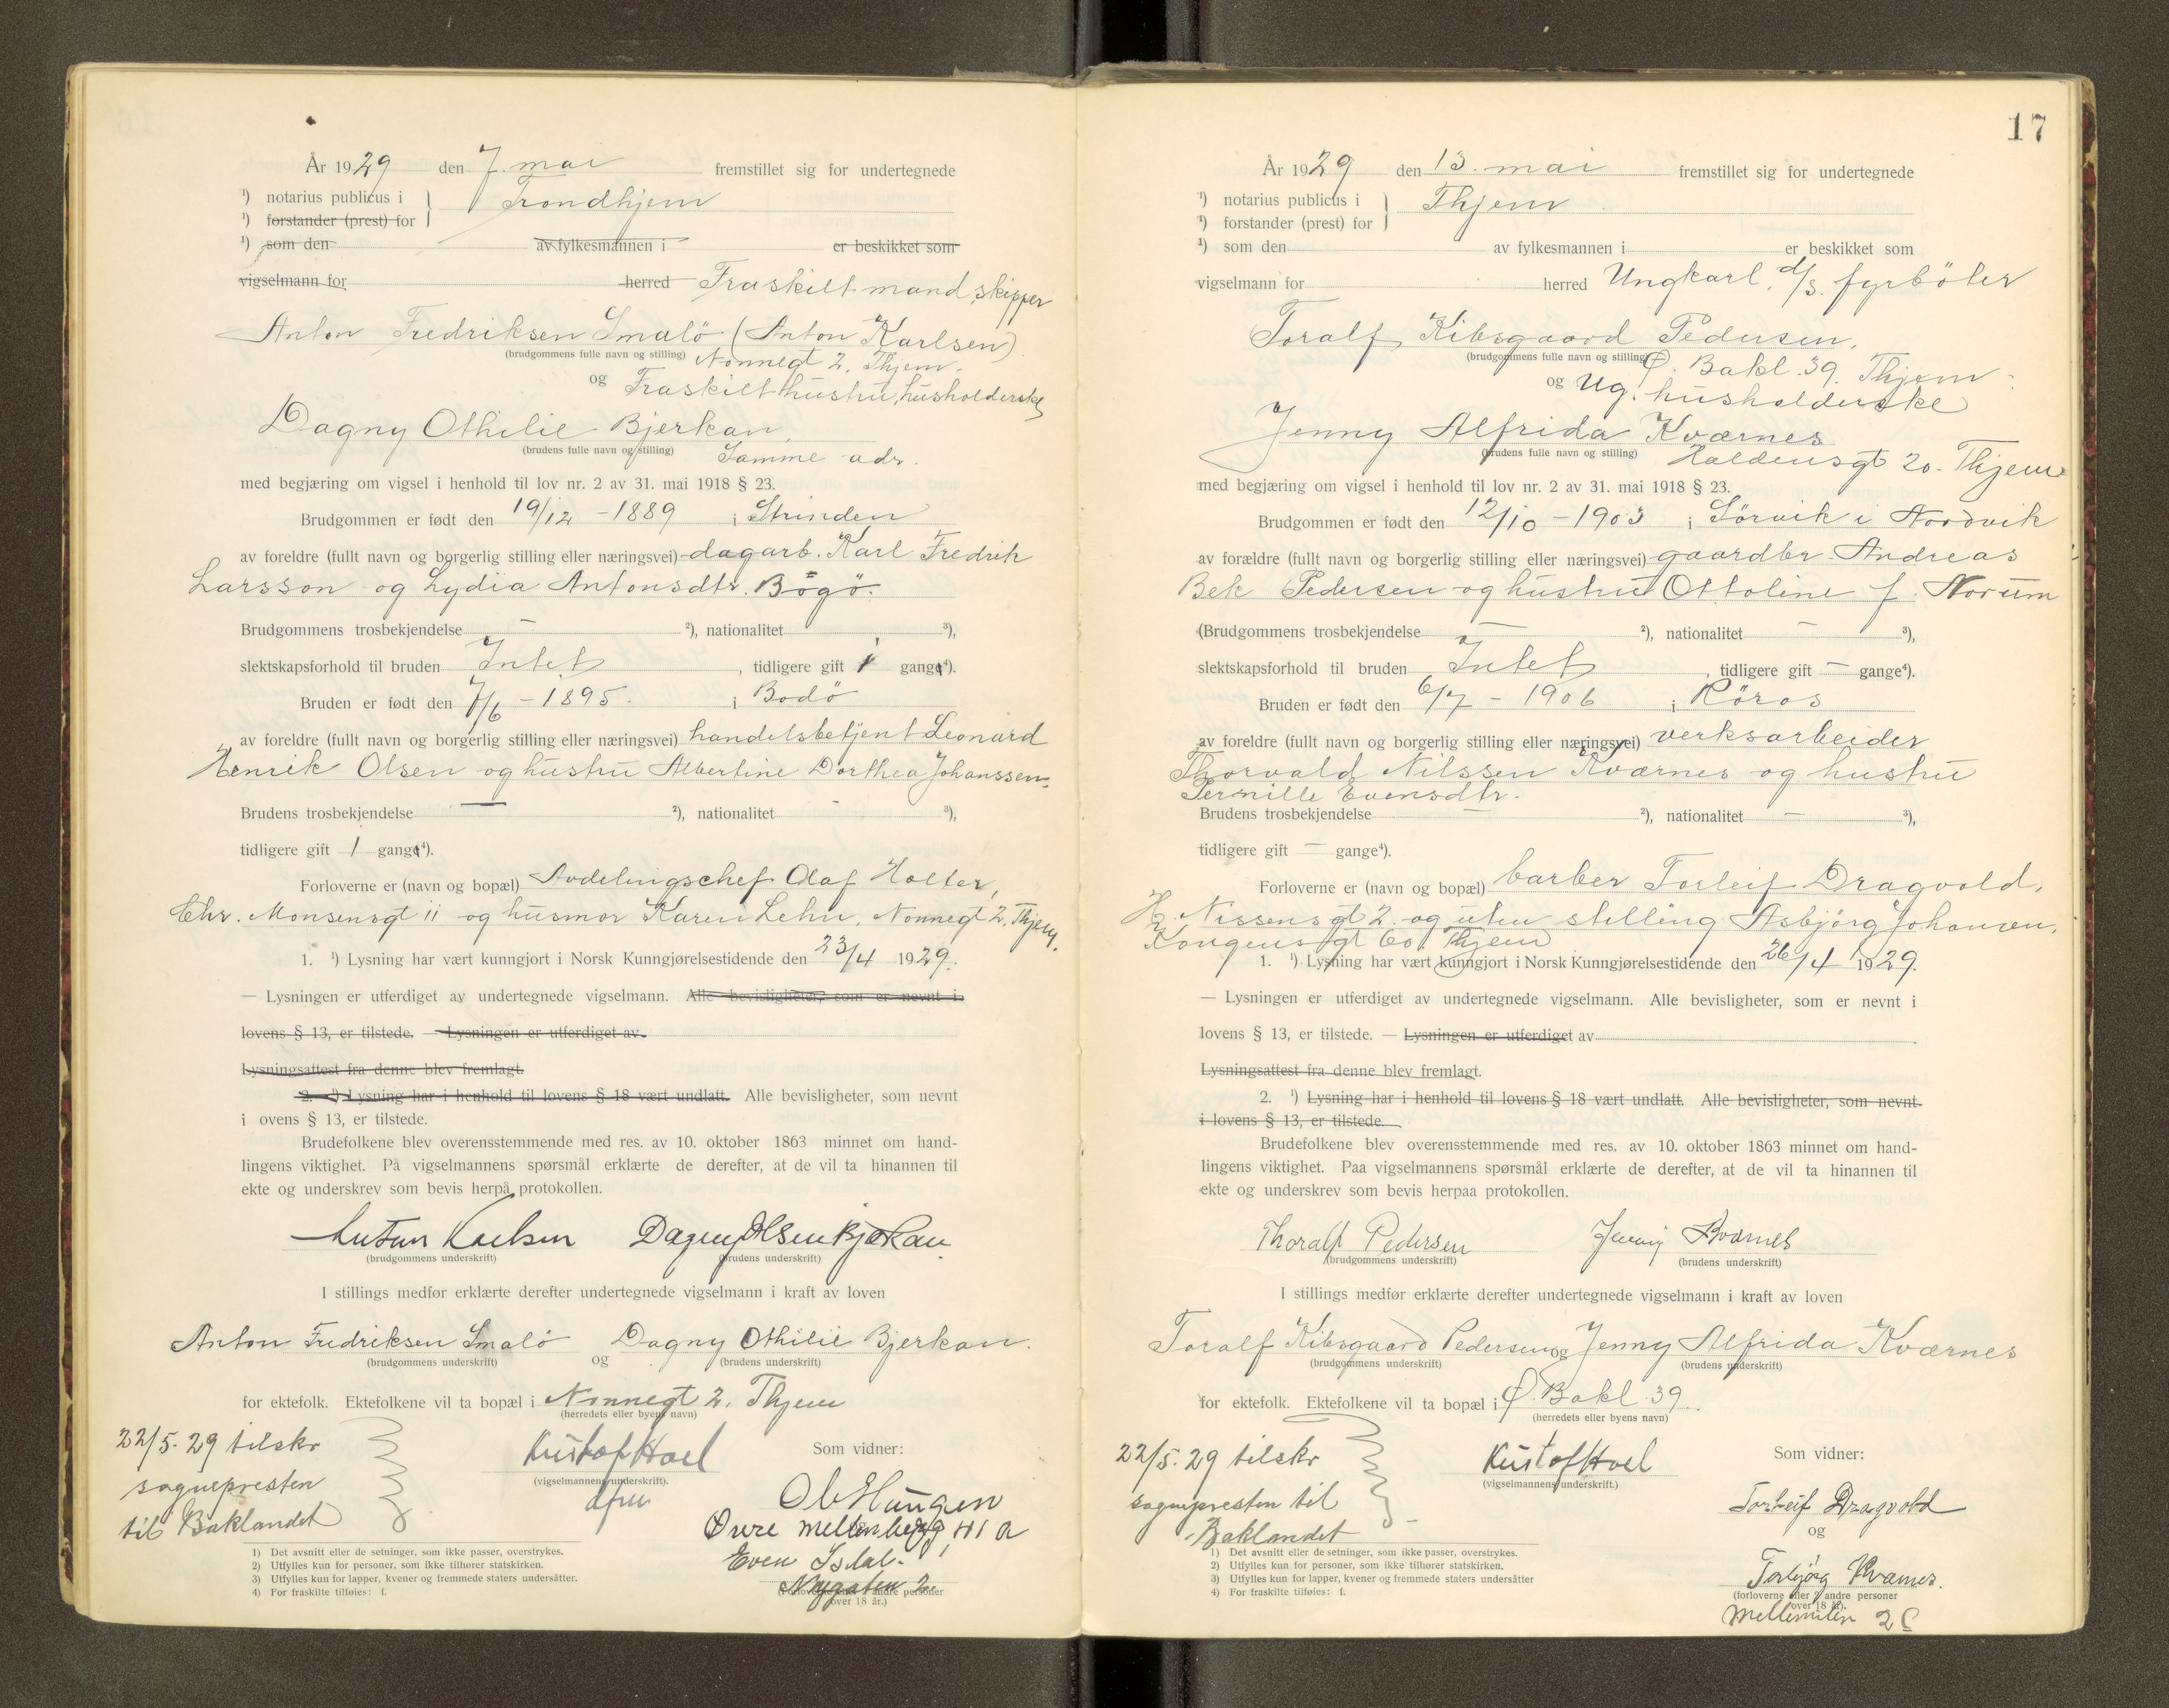 År 1929 den 7. mai fremstillet sig for undertegnede
¹) notarius publicus i } Trondhjem
¹) forstander (prest) for
¹) som den av fylkesmannen i er beskikket som
vigselmann for herred Fraskilt mand, skipper
Anton Fredriksen Smalö (Anton Karlsen)
(brudgommens fulle navn og stilling) Nonnegt 2. Thjem.
og Fraskilt hustru, husholderske
Dagny Othilie Bjerkan,
(brudens fulle navn og stilling) Samme adr.
med begjæring om vigsel i henhold til lov nr. 2 av 31. mai 1918 § 23.
Brudgommen er født den 19/12 - 1889 i Strinden
av foreldre (fullt navn og borgerlig stilling eller næringsvei) dagarb. Karl Fredrik
Larsson og Lydia Antonsdtr. Bögö.
Brudgommens trosbekjendelse — ²), nationalitet ³),
slektskapsforhold til bruden Intet, tidligere gift 1 gange⁴).
Bruden er født den 7/6 - 1895. i Bodö
av foreldre (fullt navn og borgerlig stilling eller næringsvei) handelsbetjent Leonard
Henrik Olsen og hustru Albertine Dorthea Johanssen.
Brudens trosbekjendelse — ²), nationalitet ³),
tidligere gift 1 gange⁴).
Forloverne er (navn og bopæl) Avdelingschef Olaf Holter,
Chr. Monsensgt 11 og husmor Karen Lehn, Nonnegt 2. Thjem.
1. ¹) Lysning har vært kunngjort i Norsk Kunngjørelsestidende den 23/4 1929.
— Lysningen er utferdiget av undertegnede vigselmann. Alle bevisligheter, som er nevnt i
lovens § 13, er tilstede. — Lysningen er utferdiget av
Lysningsattest fra denne blev fremlagt.
2. ¹) Lysning har i henhold til lovens § 18 vært undlatt. Alle bevisligheter, som nevnt
i ovens § 13, er tilstede.
Brudefolkene blev overensstemmende med res. av 10. oktober 1863 minnet om hand-
lingens viktighet. På vigselmannens spørsmål erklærte de derefter, at de vil ta hinannen til
ekte og underskrev som bevis herpå protokollen.
Anton Karlsen Dagny Olsen Bjerkan
(brudgommens underskrift) (brudens underskrift)
I stillings medfør erklærte derefter undertegnede vigselmann i kraft av loven
Anton Fredriksen Smalö og Dagny Othilie Bjerkan.
(brudgommens underskrift) (brudens underskrift)
for ektefolk. Ektefolkene vil ta bopæl i Nonnegt 2. Thjem
(herredets eller byens navn)
22/5. 29 tilskr
sognepresten
til Baklandet
Kristof Hoel
(vigselmannens underskrift).
Som vidner:
Øvre Møllenberg 41 a
Even
Nygaten 2
(forloverne eller 2 andre personer
over 18 år.)
1) Det avsnitt eller de setninger, som ikke passer, overstrykes.
2) Utfylles kun for personer, som ikke tilhører statskirken.
3) Utfylles kun for lapper, kvener og fremmede staters undersåtter.
4) For fraskilte tilføies: f.
17
År 1929 den 13. mai fremstillet sig for undertegnede
¹) notarius publicus i } Thjem
¹) forstander (prest) for
¹) som den av fylkesmannen i er beskikket som
vigselmann for herred Ungkarl, d/s. fyrböter
Toralf Kibsgaard Pedersen,
(brudgommens fulle navn og stilling) Ø. Bakl. 39. Thjem.
og Ug. husholderske
Jenny Alfrida Kværnes
(brudens fulle navn og stilling) Haldensgt 20. Thjem
med begjæring om vigsel i henhold til lov nr. 2 av 31. mai 1918 § 23.
Brudgommen er født den 12/10 - 1903 i Sörvik i Nordvik
av forældre (fullt navn og borgerlig stilling eller næringsvei) gaardbr. Andreas
Bek Pedersen og hustru Ottoline f. Norum
(Brudgommens trosbekjendelse — ²), nationalitet — ³),
slektskapsforhold til bruden Intet, tidligere gift — gange⁴).
Bruden er født den 6/7 - 1906 i Röros
av foreldre (fullt navn og borgerlig stilling eller næringsvei) verksarbeider
Thorvald Nilssen Kværnes og hustru
Pernille Evensdtr.
Brudens trosbekjendelse ²), nationalitet — ³),
tidligere gift — gange⁴).
Forloverne er (navn og bopæl) barber Torleif Dragvold,
H. Nissensgt 2. og uten stilling Asbjørg Johansen,
Kongensgt 60. Thjem
1. ¹) Lysning har vært kunngjort i Norsk Kunngjørelsestidende den 26/4 1929.
— Lysningen er utferdiget av undertegnede vigselmann. Alle bevisligheter, som er nevnt i
lovens § 13, er tilstede. — Lysningen er utferdiget av
Lysningsattest fra denne blev fremlagt.
2. ¹) Lysning har i henhold til lovens § 18 vært undlatt. Alle bevisligheter, som nevnt
i lovens § 13, er tilstede.
Brudefolkene blev overensstemmende med res. av 10. oktober 1863 minnet om hand-
lingens viktighet. Paa vigselmannens spørsmål erklærte de derefter, at de vil ta hinannen til
ekte og underskrev som bevis herpaa protokollen.
Thoralf Pedersen Jenny Kværnes
(brudgommens underskrift) (brudens underskrift)
I stillings medfør erklærte derefter undertegnede vigselmann i kraft av loven
Toralf Kibsgaard Pedersen og Jenny Alfrida Kværnes
(brudgommens underskrift) (brudens underskrift)
for ektefolk. Ektefolkene vil ta bopæl i Ø. Bakl. 39.
(herredets eller byens navn)
22/5. 29 tilskr
sognepresten til
Baklandet
Kristof Hoel
(vigselmannens underskrift.)
Som vidner:
Torleif Dragvold
og
Torbjørg Kværnes.
(forloverne eller 2 andre personer
over 18 år).
Mellemilen 2
1) Det avsnitt eller de setninger, som ikke passer, overstrykes.
2) Utfylles kun for personer, som ikke tilhører statskirken.
3) Utfylles kun for lapper, kvener og fremmede staters undersåtter
4) For fraskilte tilføies: f.